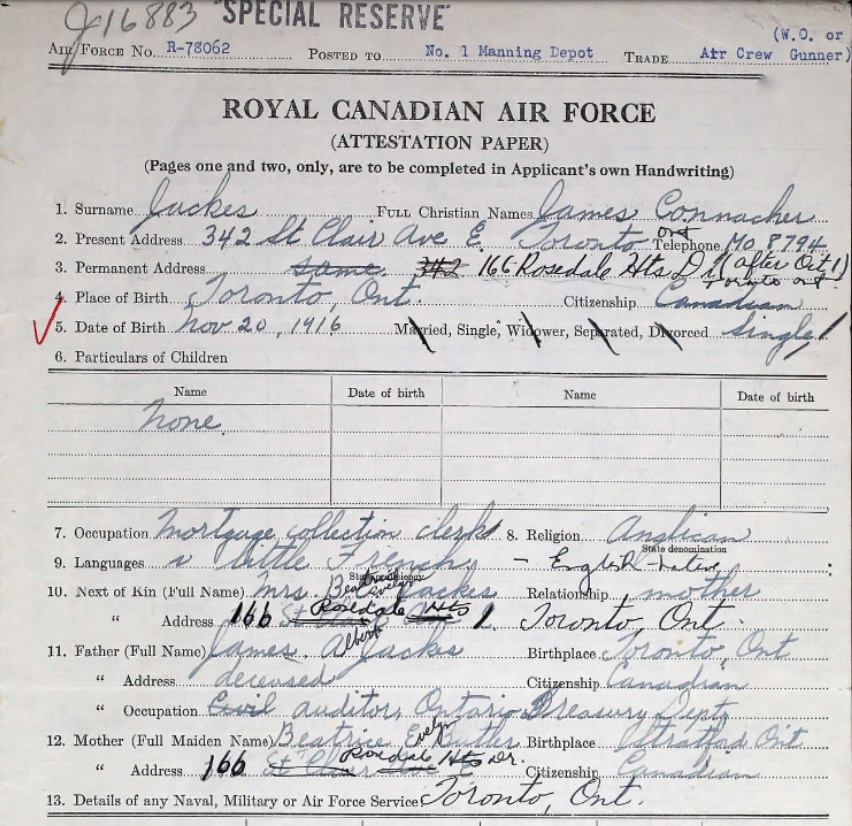 J16883 "SPECIAL RESERVE"
(W.O. or
AIR FORCE No. R-78062 POSTED TO No. 1 Manning Depot TRADE Air Crew Gunner)
ROYAL CANADIAN AIR FORCE
(ATTESTATION PAPER)
(Pages one and two, only, are to be completed in Applicant's own Handwriting)
1. Surname Jackes FULL Christian Names James Connacher
2. Present Address 342 St Clair Ave E. Toronto Ont Telephone MO. 8794
3. Permanent Address same 342 166 Rosedale Hts Dr (after Oct 1)
Toronto Ont
4. Place of Birth Toronto, Ont. Citizenship Canadian
5. Date of Birth Nov 20, 1916 Married, Single, Widower, Separated, Divorced Single
6. Particulars of Children
Name Date of birth Name Date of birth
None
7. Occupation Mortgage collection clerk 8. Religion Anglican
State denomination
9. Languages a little French - English -
State proficiency
10. Next of Kin (Full Name) Mrs. Beatrice Evelyn Jackes Relationship mother
" Address 166 St Clair Rosedale Hts Toronto, Ont.
11. Father (Full Name) James Albert Jackes Birthplace Toronto, Ont
" Address deceased Citizenship Canadian
" Occupation Civil auditor, Ontario Treasury Dept
12. Mother (Full Maiden Name) Beatrice Evelyn Butler Birthplace Stratford Ont
" Address 166 St Clair Rosedale Hts Dr. Citizenship Canadian
13. Details of any Naval, Military or Air Force Service Toronto, Ont.